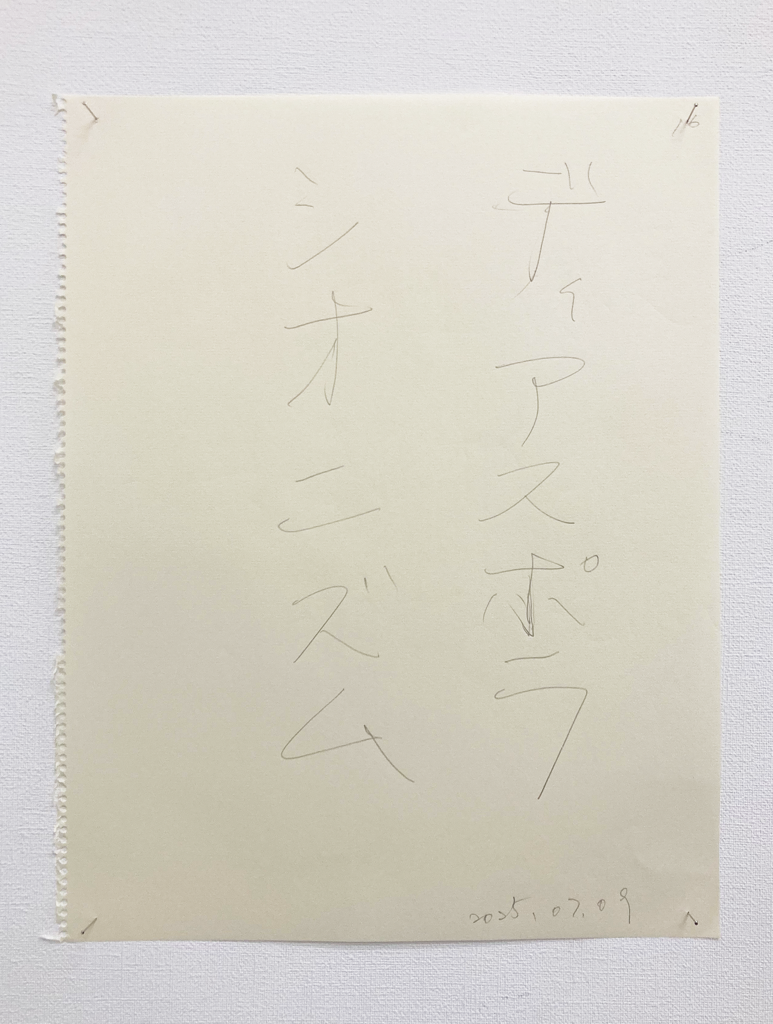 16
ディアスポラ
シオニズム
2025.07.09